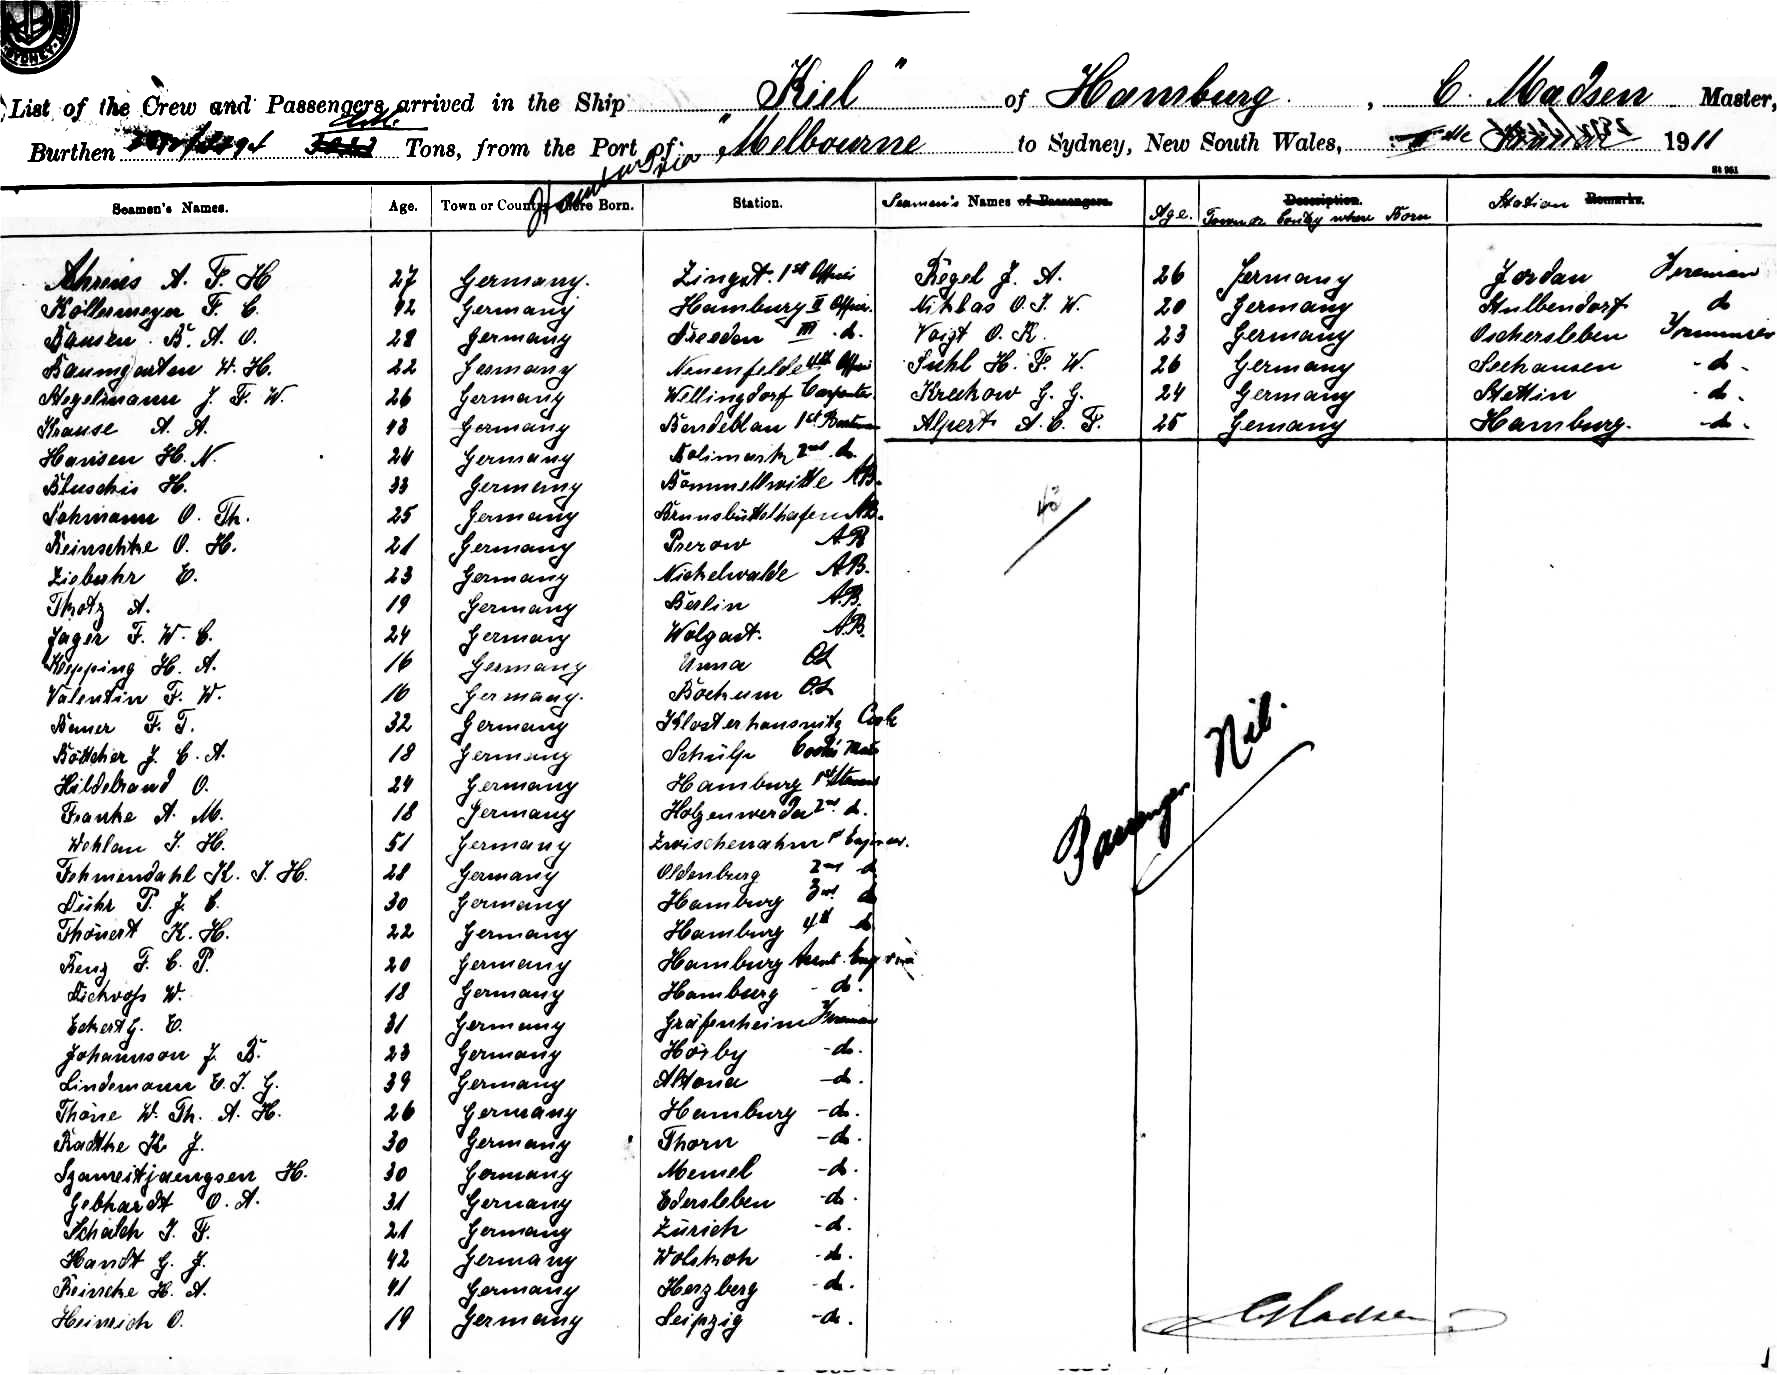 SYDNEY
List of the Crew and Passengers arrived in the Ship "Kiel" of Hamburg, C. Madsen Master,
Burthen Tons, from the Port of Hamburg via "Melbourne to Sydney, New South Wales, 1911
St 961
Seamen's Names. Age. Town or Country where Born. Station. Seamen's Names of Passengers. Age. Description. Town or Contry where Born Station Remarks.
Ahrens A. F. H 27 Germany. Zingst. 1st Officer Regel J. A. 26 Germany Jordan Fireman
Köllermeyer F. C. 42 Germany Hamburg II Officer. Niklas O. J. W. 20 Germany Mulbendorf d
Bausen B. A. O. 28 Germany Dresden III d. Voigt O. K. 23 Germany Oschersleben Trimmer
Baumgarten W. H. 22 Germany Neuenfelde 4th Officer Suhl H. F. W. 26 Germany Seehausen - d -
Stegelmann J. F. W. 26 Germany Wellingdorf Carpenter. Krechow G. G. 24 Germany Stettin - d -
Krause A. A. 43 Germany Bendeblau 1st Boatsman Alpert A. C. F. 25 Germany Hamburg. - d -
Hansen H. N. 24 Germany 2nd d.
Bluschis H. 33 Germany Bommelsvitte AB.
Lohmann O. Th. 25 Germany Brunsbüttelhafen AB.
Reinschke O. H. 21 Germany Prerow AB
Ziebuhr E. 23 Germany Nickelwalde AB.
Thotz A. 19 Germany Berlin A.B.
Jager F. W. C. 24 Germany Wolgast. A.B.
Kepping H. A. 16 Germany Unna OS
Valentin F. W. 16 Germany. Bochum O.S
Bauer F. T. 32 Germany Klosterhausnitz Cook
Böttcher J. C. A. 18 Germany Schülp Cooks Mate
Hildebrand O. 24 Germany Hamburg 1st Steward
Franke A. M. 18 Germany Holzenwerda 2nd d.
Wehlau J. H. 51 Germany Zwischenahn 1st Engineer.
Fehmerdahl K. J. H. 28 Germany Oldenburg 2nd d
Dühr P. J. C. 30 Germany Hamburg 3rd d
Thönert K. H. 22 Germany Hamburg 4th d
Renz F. C. P. 20 Germany Hamburg Assnt. Engineer
Dickvoss W. 18 Germany Hamburg - d.
Eckert G. E. 31 Germany Gräfenheim Fireman
Johannson J. B. 23 Germany Hörby - d.
Lindemann E. J. G. 39 Germany Altona - d.
Thöne W. Th. A. H. 26 Germany Hamburg - d.
Radtke K. J. 30 Germany Thorn - d.
Szameitjaengsen H. 30 Germany Memel - d.
Gebhardt O. A. 31 Germany Edersleben - d.
Schalch J. F. 21 Germany Zürich - d.
Handt G. J. 42 Germany Wolskoh - d.
Reincke H. A. 41 Germany Herzberg - d.
Heinrich O. 19 Germany Leipzig - d.
Passenger Nil.
C Madsen